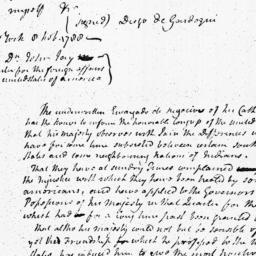 myself &c
(signed) Diego de Gardoqui
York 8 Feb. 1788
Dn. John Jay
for the foreign affairs
united states of america
The underwritten Encargado de negocios of his Cath
has the honor to inform the honorable congress of the united
that his majesty observes with Pain the Differences w
have for some time subsisted between certain south
States and some neighbouring nations of Indians.
That they have at sundry Times complained
the injuries with which they have been treated by som
americans, and have applied to the Governors
Possessions of his Majesty in that Quarter for the
which had for a long time past been granted t
That altho his majesty could not be sensible of
yet that Friendship which he professed to the U
States, has induced him to the most